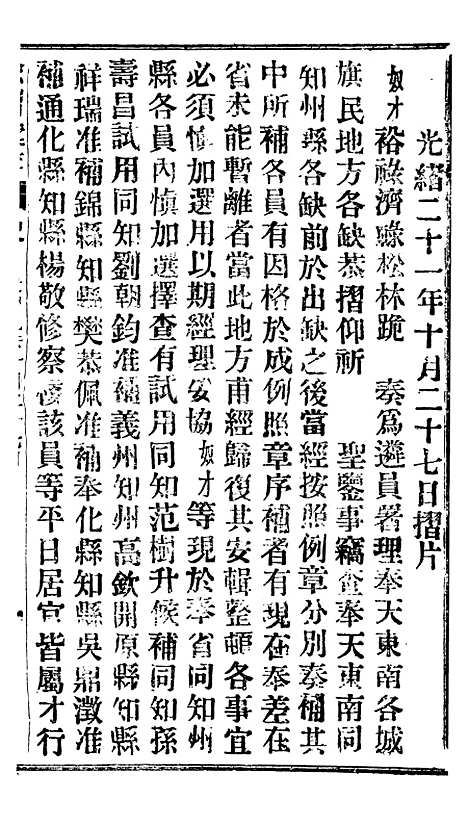 光緒二十一年十月二十七日摺片
奴才裕祿濟祿松林跪　奏爲遴員署理奉天東南各城
旗民地方各缺恭摺仰祈　聖鑒事竊查奉天東南同
知州縣各缺前於出缺之後當經按照例章分別奏補其
中所補各員有因格於成例照章序補者有現在奉差在
省未能暫離者當此地方甫經歸復其安輯整頓各事宜
必須愼加選用以期經理妥協奴才等現於奉省同知州
縣各員內愼加選擇查有試用同知范樹升候補同知孫
壽昌試用同知劉朝鈞准補義州知州高欽開原縣知縣
祥瑞准補錦縣知縣樊恭佩准補奉化縣知縣吳鼎澂准
補通化縣知縣楊敬修察看該員等平日居官皆屬才行